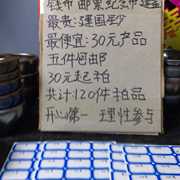 钱币 邮票 纪念币
最贵:建国钞
最便宜:30元产品
五件包邮
30元起拍
共计:120件拍品
开心第一 理性参与